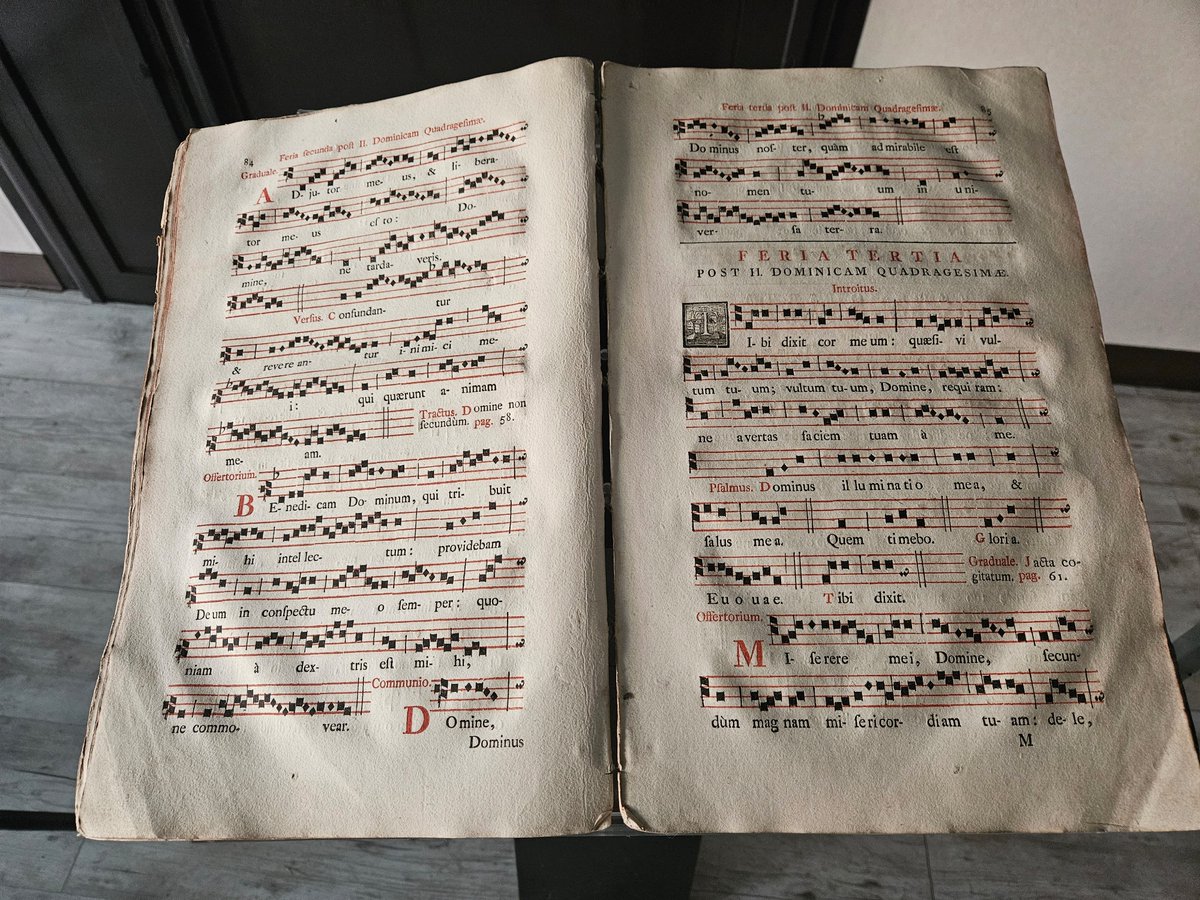 84
Feria ſecunda poſt II. Dominicam Quadrageſimæ.
Graduale.
A D. ju- tor me- us, & li- bera-
tor me- us eſ to : Do-
mine, ne tarda- veris.
Verſus. C onfundan- tur
& revere an- tur i- ni mi- ci me-
i : qui quærunt a- nimam
me- am. Tractus. D omine non
ſecundùm. pag. 58.
Offertorium.
B E- nedi- cam Do- minum, qui tri- buit
mi- hi intel lec- tum : providebam
De um in conſpectu me- o ſem- per : quo-
niam à dex- tris eſt mi- hi,
ne commo- vear. Communio. D O mine,
Dominus
Feria tertia poſt II. Dominicam Quadrageſimæ. 85
Do minus noſ- ter, quàm ad mirabile eſt
no- men tu- um in u ni-
ver- ſa ter- ra.
FERIA TERTIA
POST II. DOMINICAM QUADRAGESIMÆ.
Introitus.
T I- bi dixit cor me um : quæſi- vi vul-
tum tu- um ; vultum tu- um, Domine, requi ram :
ne a vertas fa ciem tuam à me.
Pſalmus. D ominus il lu mi na tio me a, &
ſa lus me a. Quem ti me bo. G lori a.
E u o u a e. T ibi dixit. Graduale. J acta co-
gitatum. pag. 61.
Offertorium.
M I- ſe rere me i, Domine, ſecun-
dùm mag nam mi- ſe ri cor- diam tu- am : de- le,
M